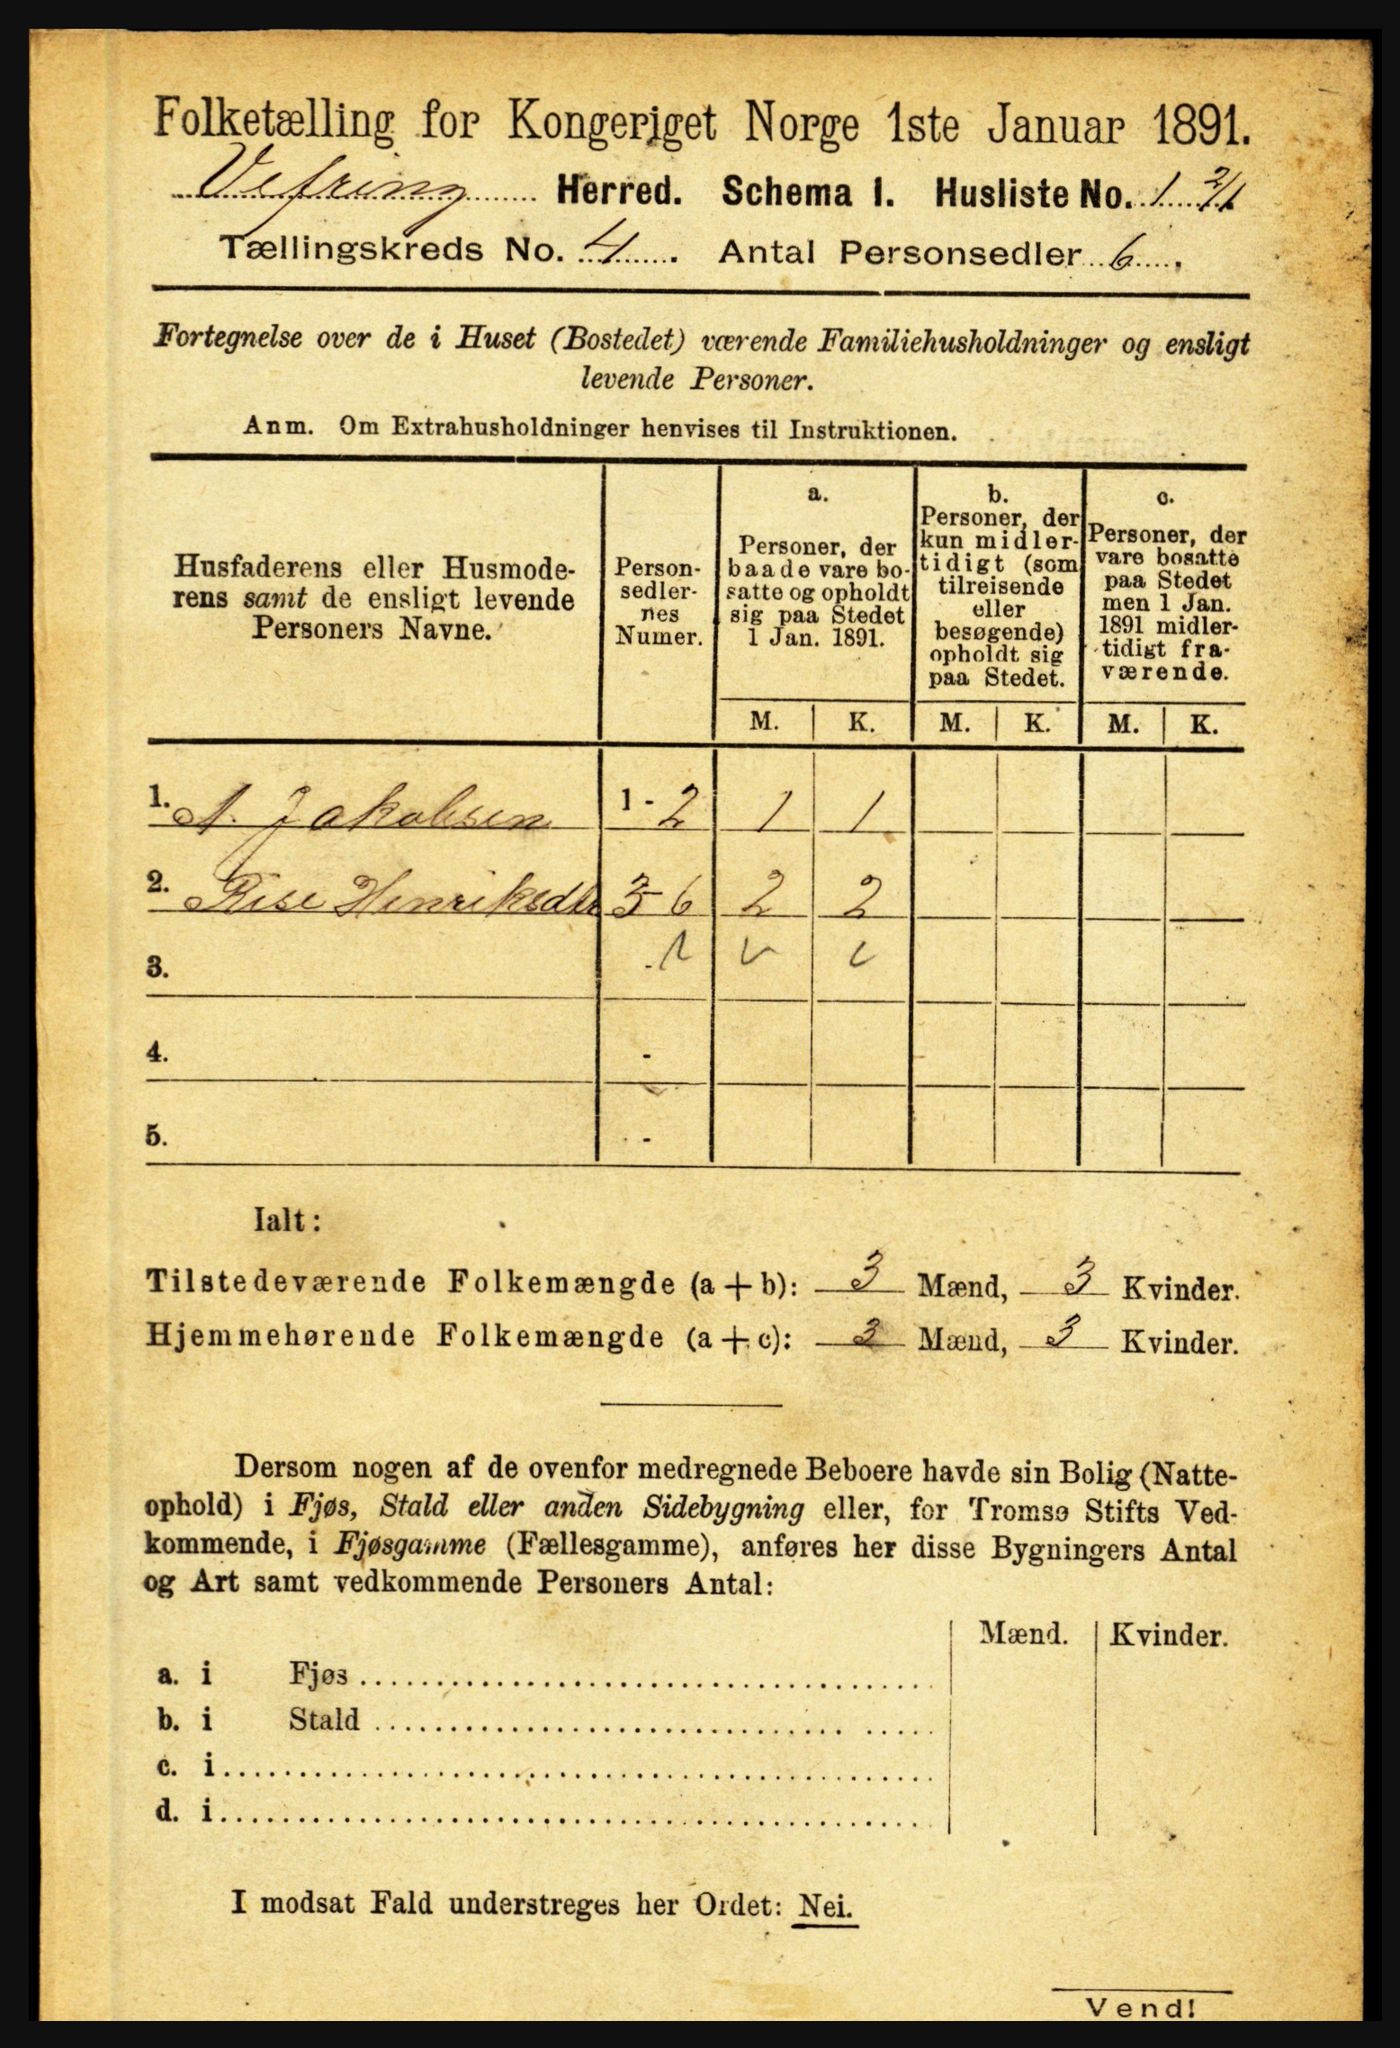 Folketælling for Kongeriget Norge 1ste Januar 1891.
Vefsring Herred. Schema I. Husliste No. 1
Tællingskreds No. 4. Antal Personsedler 6.
Fortegnelse over de i Huset (Bostedet) værende Familiehusholdninger og ensligt
levende Personer.
Anm. Om Extrahusholdninger henvises til Instruktionen.
Husfaderens eller Husmode-
rens samt de ensligt levende
Personers Navne.
Person-
sedler-
nes
Numer.
a.
Personer, der
baade vare bo-
satte og opholdt
sig paa Stedet
1 Jan. 1891.
b.
Personer, der
kun midler-
tidigt (som
tilreisende
eller
besøgende)
opholdt sig
paa Stedet.
c.
Personer, der
vare bosatte
paa Stedet
men 1 Jan.
1891 midler-
tidigt fra-
værende.
M. K. M. K. M. K.
1. A. Jakobsen 1 - 2 1 1
2. Henriksdtr 3-6 2 2
3. -
4. -
5. -
Ialt:
Tilstedeværende Folkemængde (a + b): 3 Mænd, 3 Kvinder.
Hjemmehørende Folkemængde (a + c): 3 Mænd, 3 Kvinder.
Dersom nogen af de ovenfor medregnede Beboere havde sin Bolig (Natte-
ophold) i Fjøs, Stald eller anden Sidebygning eller, for Tromsø Stifts Ved-
kommende, i Fjøsgamme (Fællesgamme), anføres her disse Bygningers Antal
og Art samt vedkommende Personers Antal:
Mænd. Kvinder.
a. i Fjøs
b. i Stald
c. i
d. i
I modsat Fald understreges her Ordet: Nei.
Vend!